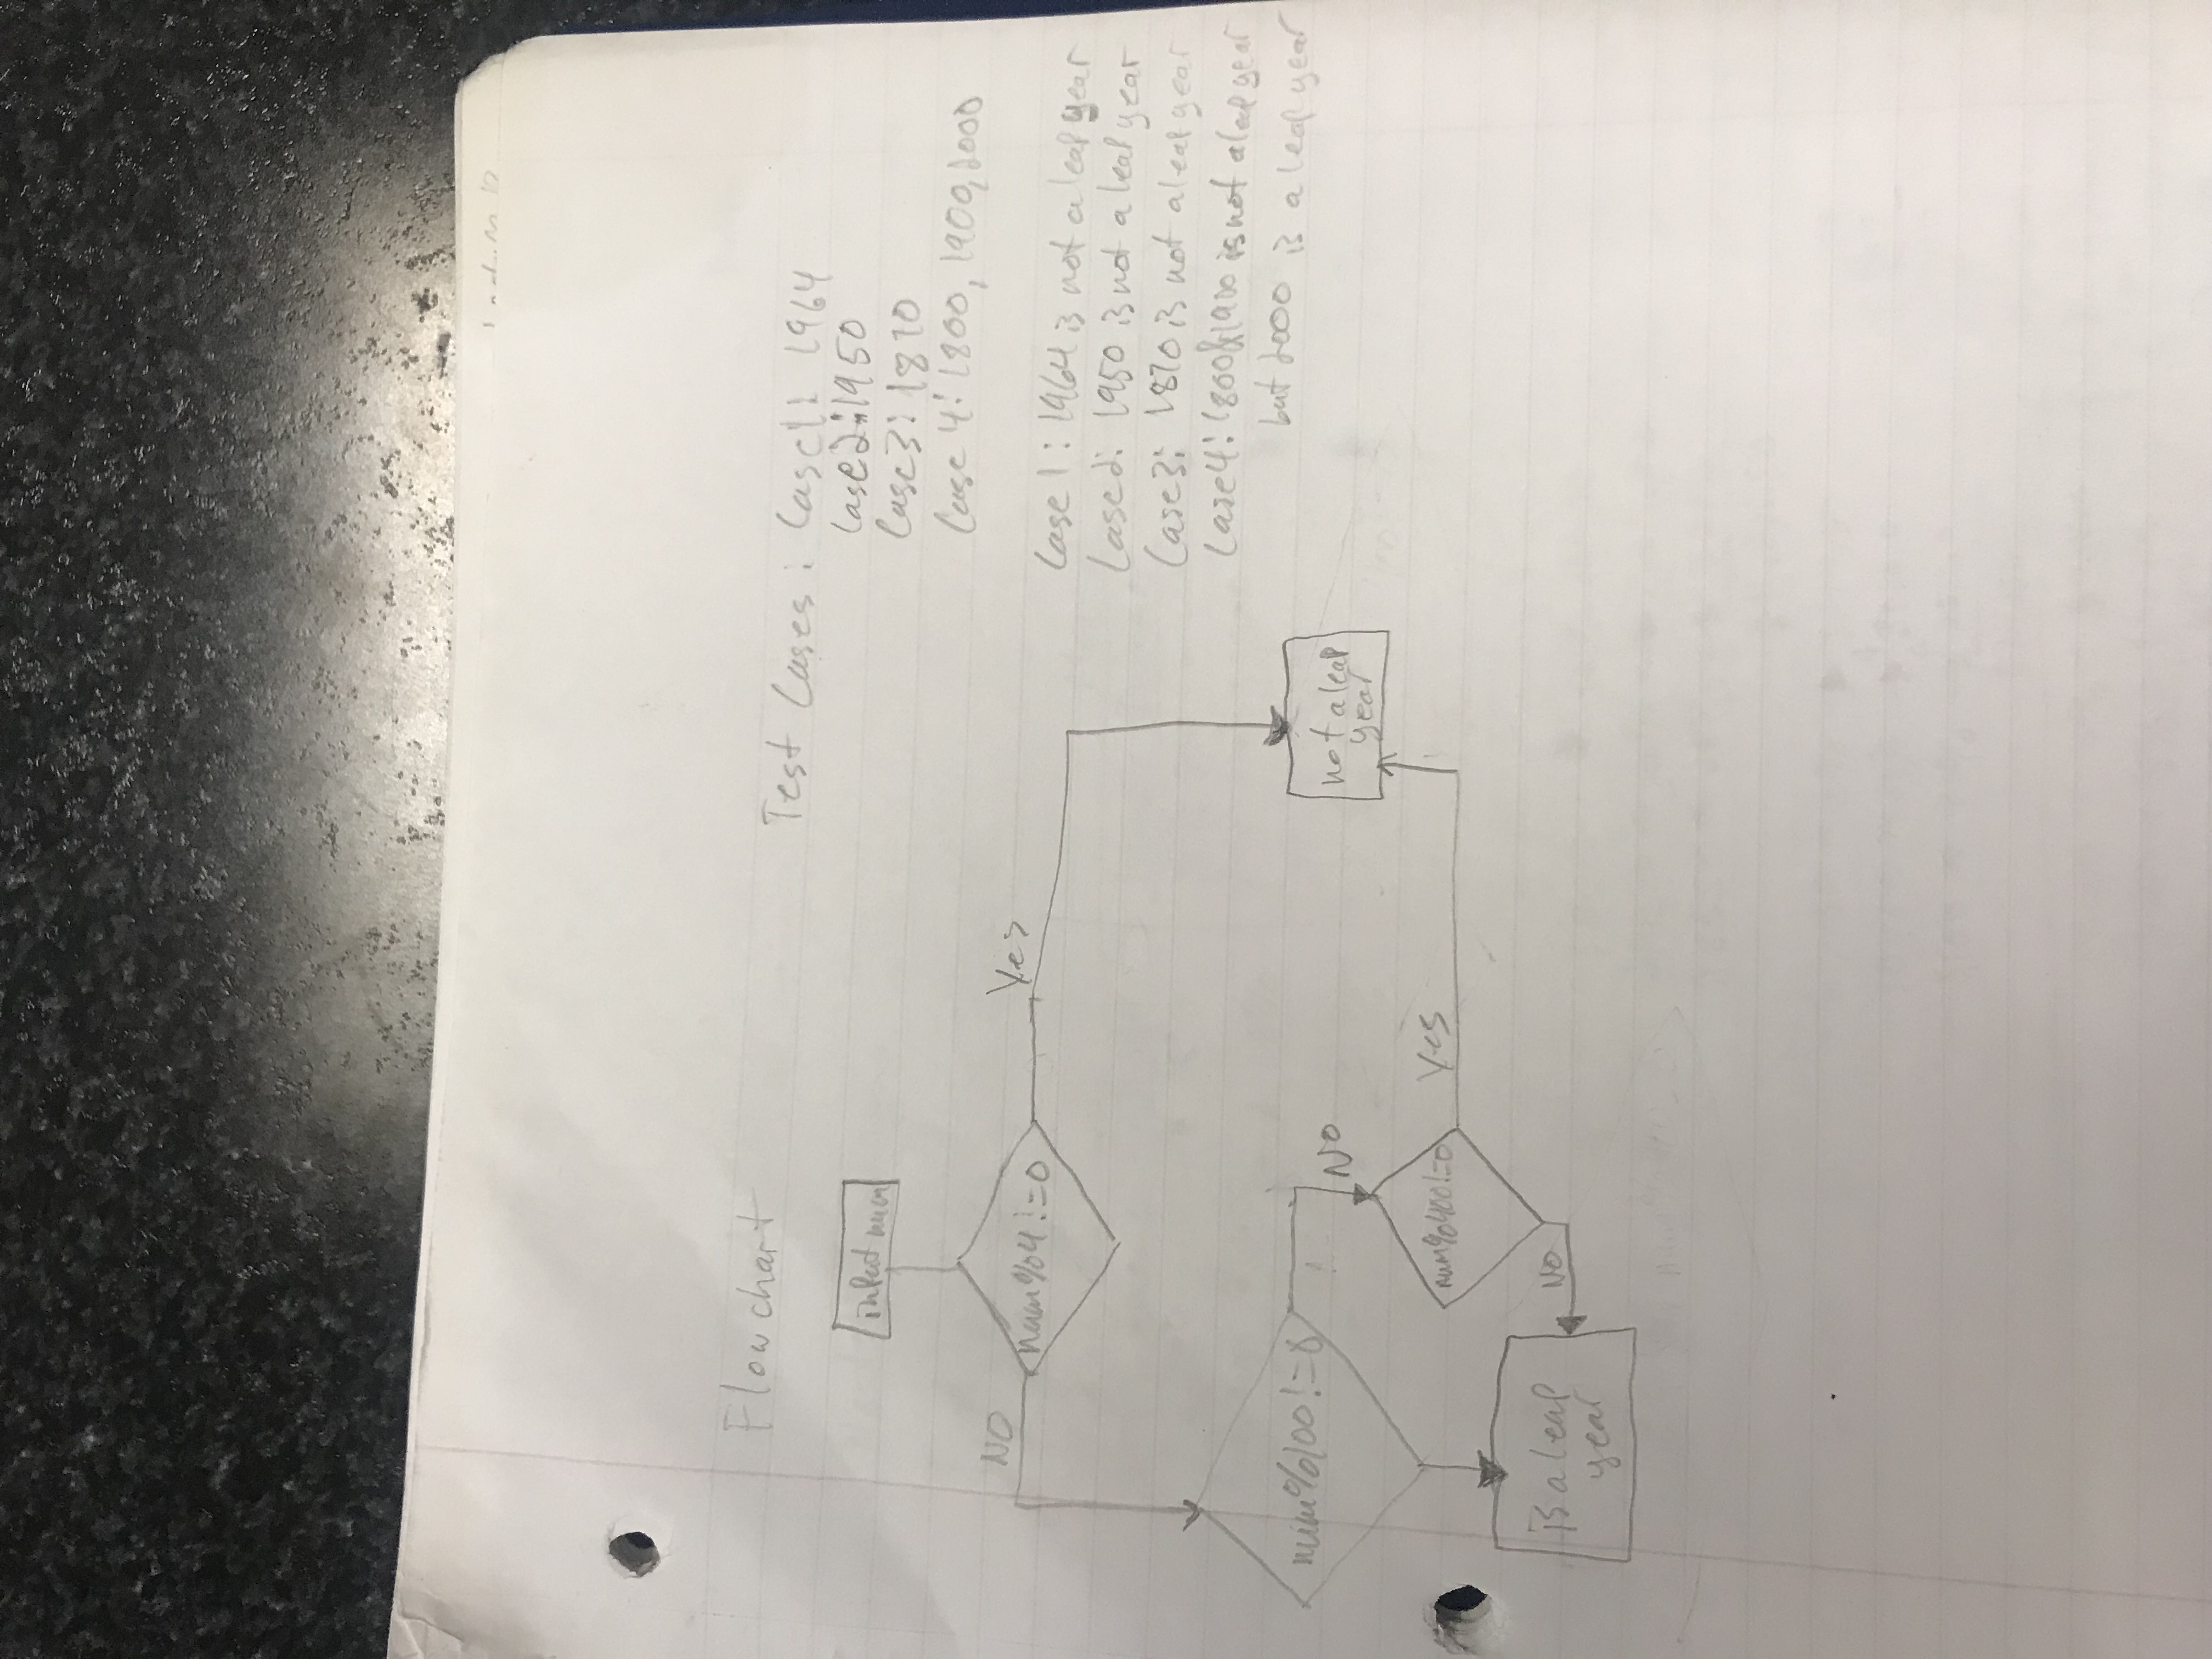 Flowchart
input num
num%4!=0
NO
Yes
num%100!=0
NO
num%400!=0
Yes
NO
is a leap
year
not a leap
year
Test Cases: Case1: 1964
Case2: 1950
Case3: 1870
Case 4: 1800, 1900, 2000
Case 1: 1964 is not a leap year
Case2: 1950 is not a leap year
Case3: 1870 is not a leap year
Case4: 1800&1900 is not a leap year
but 2000 is a leap year